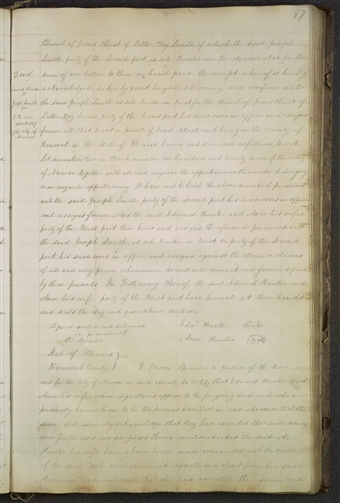 87
Church of Jesus Christ of Latter Day Saints, of which the said Joseph
Smith party of the Second part, is sole Trustee in Trust, and also for the
sum of one dollar to them in hand paid, the receipt whereof is hereby
acknowledged, do hereby grant bargain, sell, convey, and confirm unto
the said Joseph Smith as sole Trustee in Trust for the Church of Jesus Christ of
Latter Day Saints party of the Second part, his successors in office and assigns
forever, all that tract or parcel of land, situate and being in the county of
Hancock in the State of Illinois known and described as follows to wit
Lot number two in Block number one hundred and twenty of the City
of Nauvoo together with all and singular the appurtenances thereunto belonging
or in anywise appertaining. To have and to hold the above described premises
unto the said Joseph Smith, party of the Second part his successors in office
and assigns forever. And the said Edward Hunter and Ann his wife
party of the First part their heirs and
the said Joseph Smith, as sole Trustee in Trust or party of the Second
part his successors in office and assigns against the claim or claims
of all and every person whomsoever, do and will warrant and forever defend
by these presents. In Testimony Whereof the said Edward Hunter and
Ann his wife, party of the First part have hereunto set their hands
and seals the day and year above written
Signed sealed and delivered
in presence of
O. Spencer
Edwd Hunter (Seal)
Ann Hunter (Seal)
State of Illinois
Hancock County
I Orson Spencer
and for the City of Nauvoo in said county do certify that Edward Hunter and
Ann his wife, whose signatures appear to the foregoing deed, and who are
personally known to me to be the persons described in, and who executed the
same did severally acknowledge that they had executed the said conveyance
for the uses and purposes therein mentioned. And the said Ann
Hunter his wife, having been by me made acquainted with the contents
of the said deed and examined separate and apart from her said
husband acknowledged that she had executed the same and